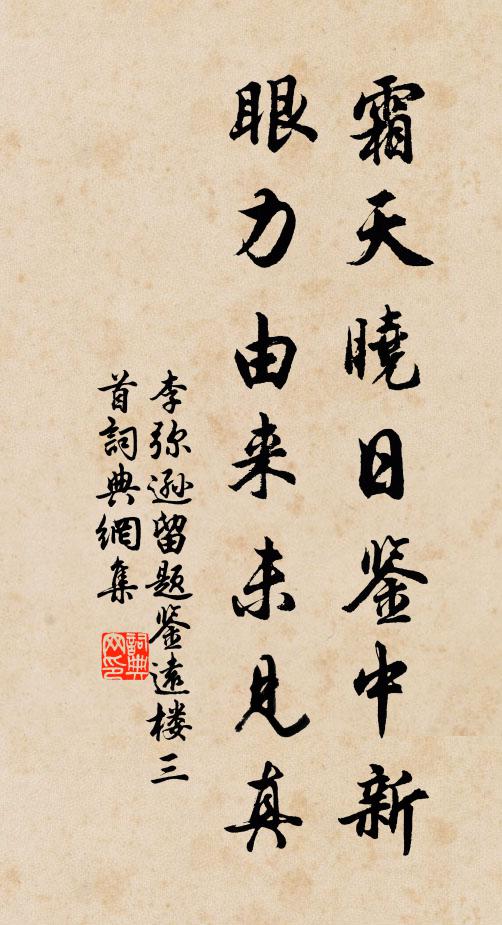 霜天曉日鉴中新
眼力由来未見真
李弥遜留题鉴遠楼三
首詞典網集
詞典
网印